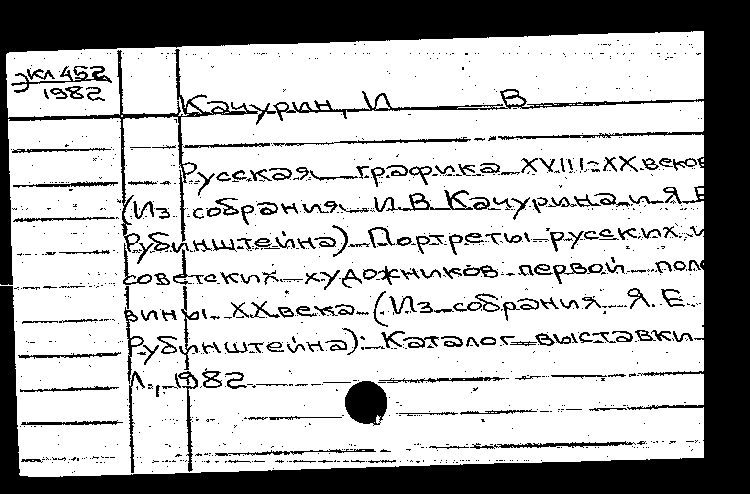 экл 452
1982
Качурин, И В
Русская графика XVIII-XX веков
(Из собрания И.В Качурина и Я.Е
Рубинштейна). Портреты русских и
советских художников первой поло
вины XX века (Из собрания Я.Е.
Рубинштейна): Каталог выставки
Л., 1982